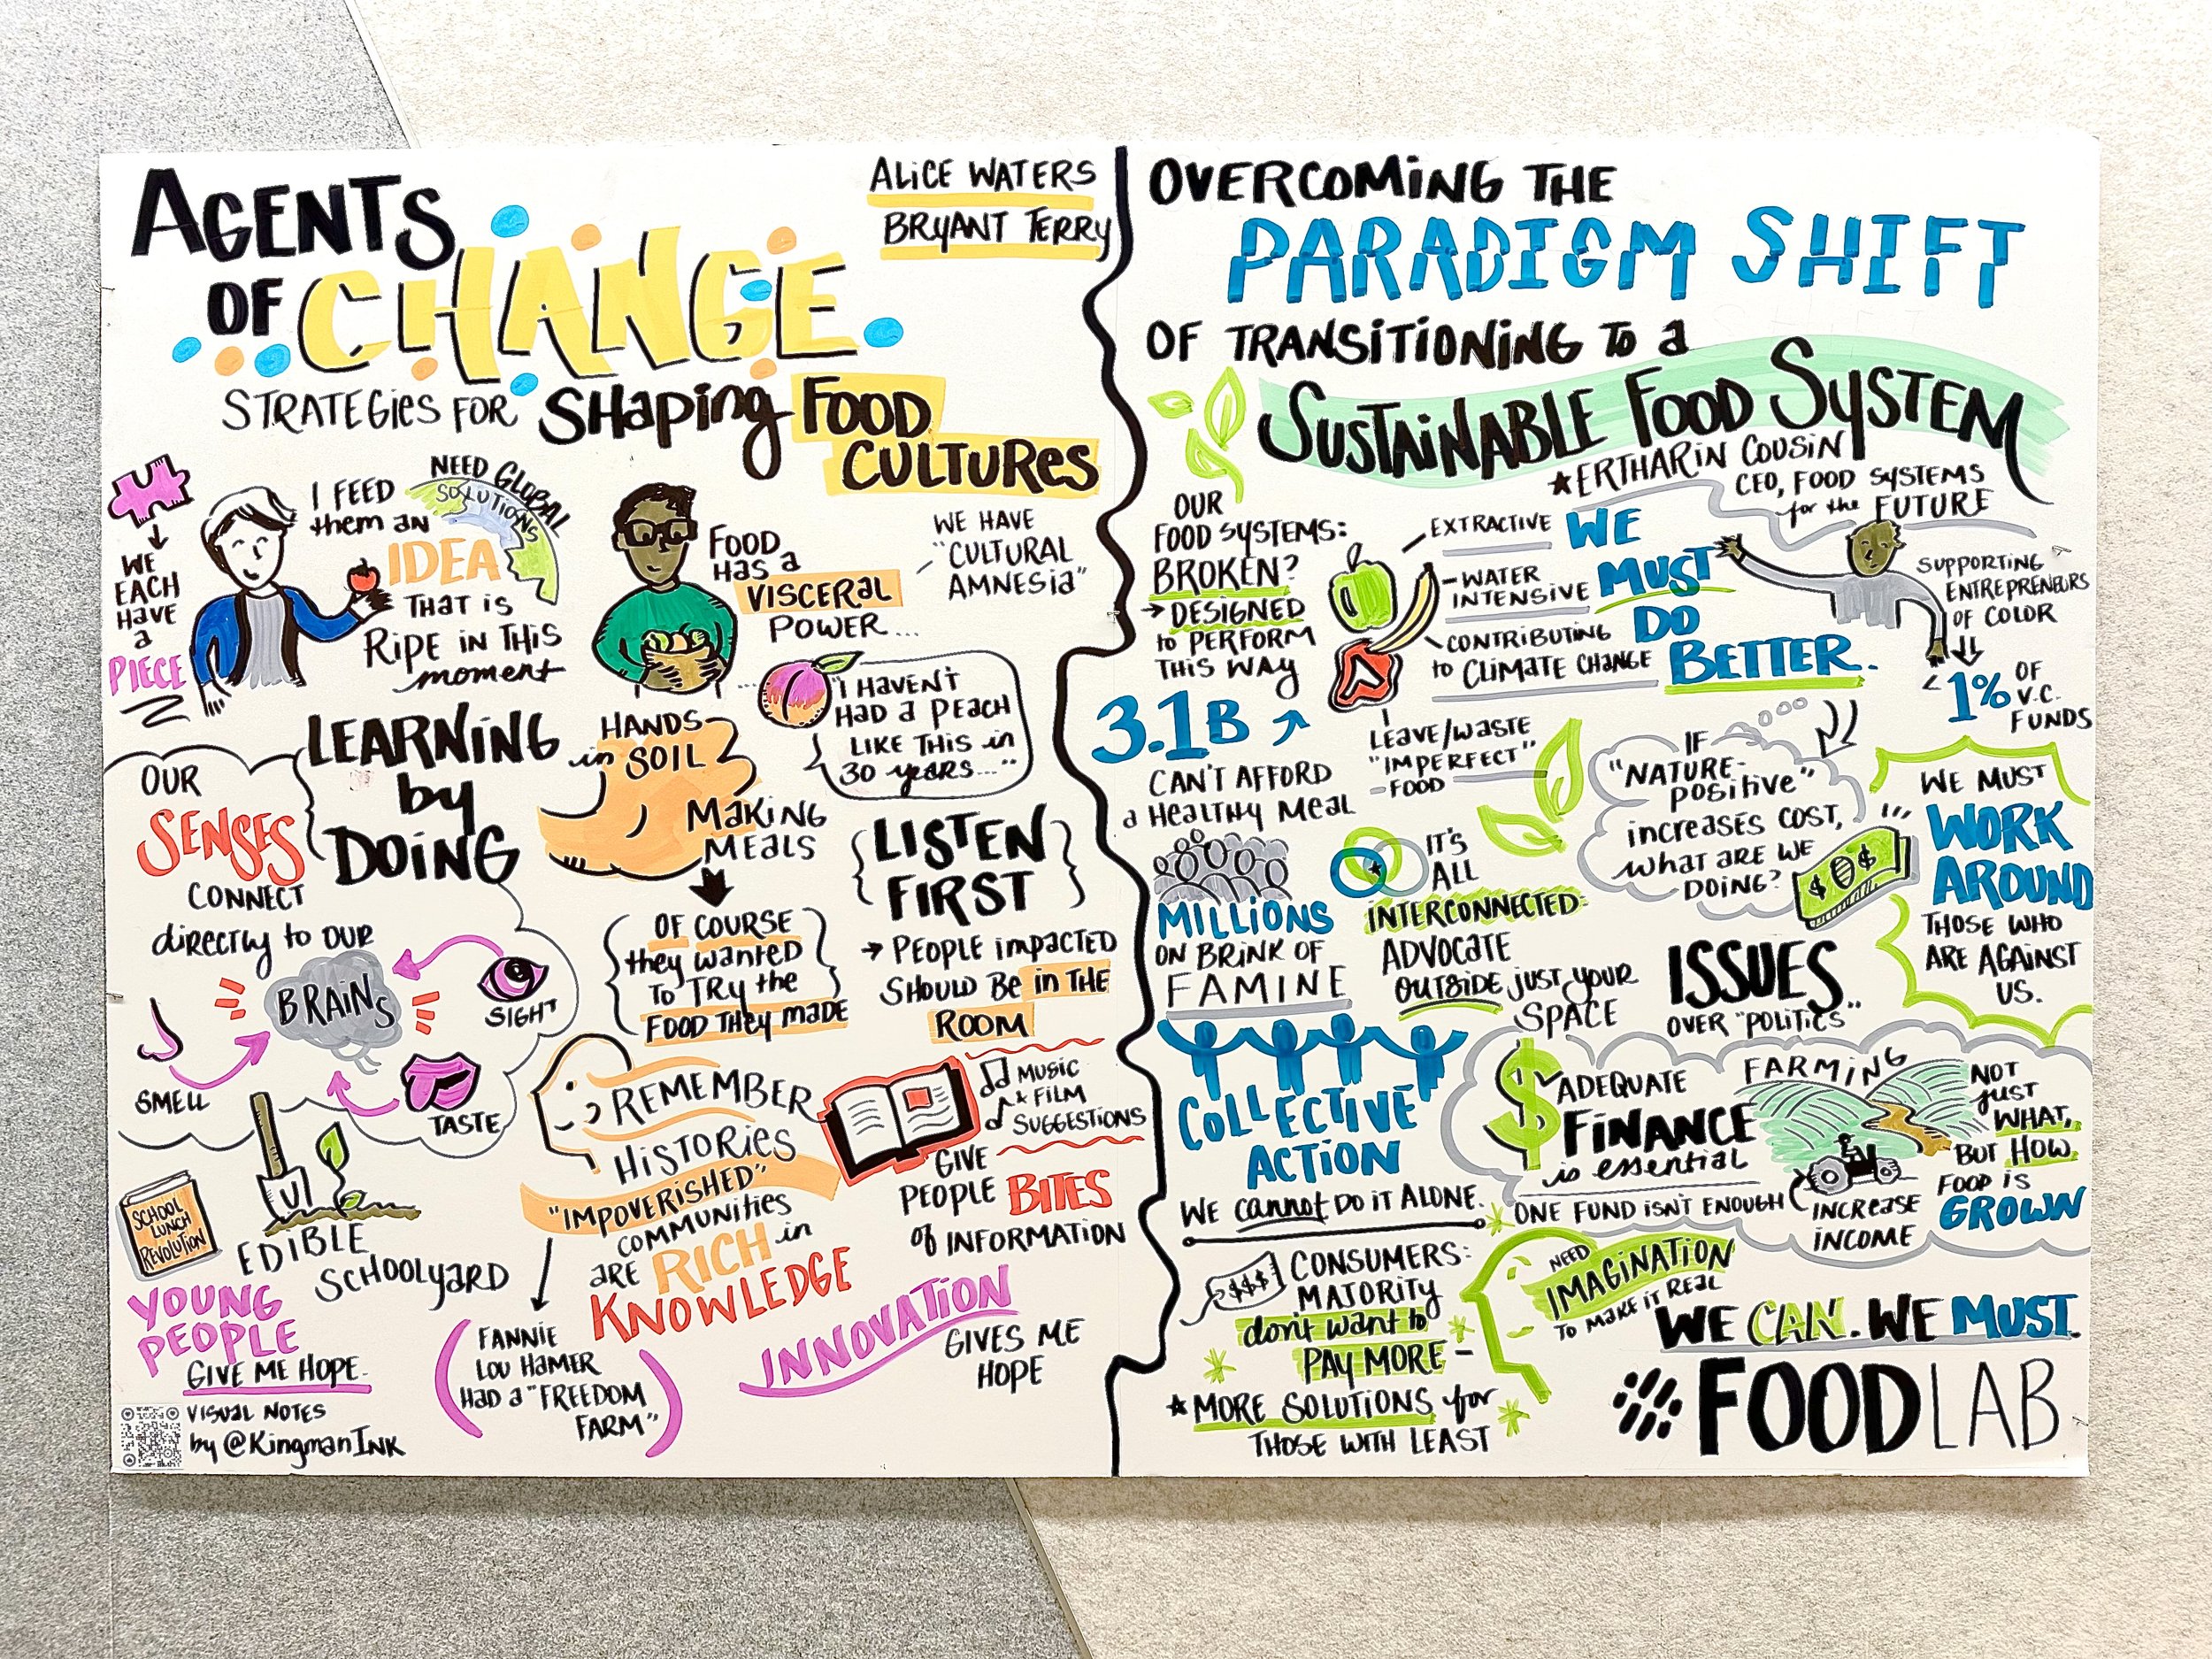 AGENTS
OF CHANGE
STRATEGIES FOR SHAPING FOOD
CULTURES
ALICE WATERS
BRYANT TERRY
WE
EACH
HAVE
a
PIECE
I FEED
them AN
IDEA
THAT IS
RIPE IN THIS
moment
NEED GLOBAL
SOLUTIONS
FOOD
HAS a
VISCERAL
POWER....
WE HAVE
"CULTURAL
AMNESIA"
"I HAVEN'T
HAD a PEACH
LIKE THIS in
30 years..."
LEARNING
by
DOING
HANDS
in SOIL
MAKING
MEALS
OF COURSE
they WANTED
TO TRY the
FOOD THEY MADE
LISTEN
FIRST
PEOPLE IMPACTED
SHOULD BE IN THE
ROOM
OUR
SENSES
CONNECT
directly to OUR
BRAINS
SIGHT
SMELL
TASTE
SCHOOL
LUNCH
REVOLUTION
EDIBLE
SCHOOLYARD
YOUNG
PEOPLE
GIVE ME HOPE.
REMEMBER
HISTORIES
"IMPOVERISHED"
COMMUNITIES
ARE RICH in
KNOWLEDGE
FANNIE
LOU HAMER
HAD a "FREEDOM
FARM"
MUSIC
& FILM
SUGGESTIONS
GIVE
PEOPLE BITES
of INFORMATION
INNOVATION
GIVES ME
HOPE
VISUAL NOTES
by @KingmanInk
OVERCOMING THE
PARADIGM SHIFT
OF TRANSITIONING TO a
SUSTAINABLE FOOD SYSTEM
ERTHARIN COUSIN
CEO, FOOD SYSTEMS
for the FUTURE
OUR
FOOD SYSTEMS:
BROKEN?
DESIGNED
to PERFORM
THIS WAY
EXTRACTIVE
- WATER
INTENSIVE
CONTRIBUTING
to CLIMATE CHANGE
LEAVE/WASTE
"IMPERFECT"
- FOOD
WE
MUST
DO
BETTER.
SUPPORTING
ENTREPRENEURS
OF COLOR
<1% OF
V.C.
FUNDS
3.1B
CAN'T AFFORD
a HEALTHY MEAL
MILLIONS
ON BRINK OF
FAMINE
IT'S
ALL
INTERCONNECTED:
ADVOCATE
OUTSIDE JUST YOUR
SPACE
IF
"NATURE-
POSITIVE"
INCREASES COST,
WHAT ARE WE
DOING?
WE MUST
WORK
AROUND
THOSE WHO
ARE AGAINST
US.
ISSUES..
OVER "POLITICS"
COLLECTIVE
ACTION
WE cannot DO IT ALONE.
$ ADEQUATE
FINANCE
is essential
ONE FUND ISN'T ENOUGH
FARMING
NOT
just
WHAT,
BUT HOW
FOOD IS
GROWN
INCREASE
INCOME
$$$
CONSUMERS:
MAJORITY
don't want to
PAY MORE -
MORE SOLUTIONS for
THOSE WITH LEAST
NEED
IMAGINATION
TO MAKE IT REAL
WE CAN. WE MUST.
FOODLAB